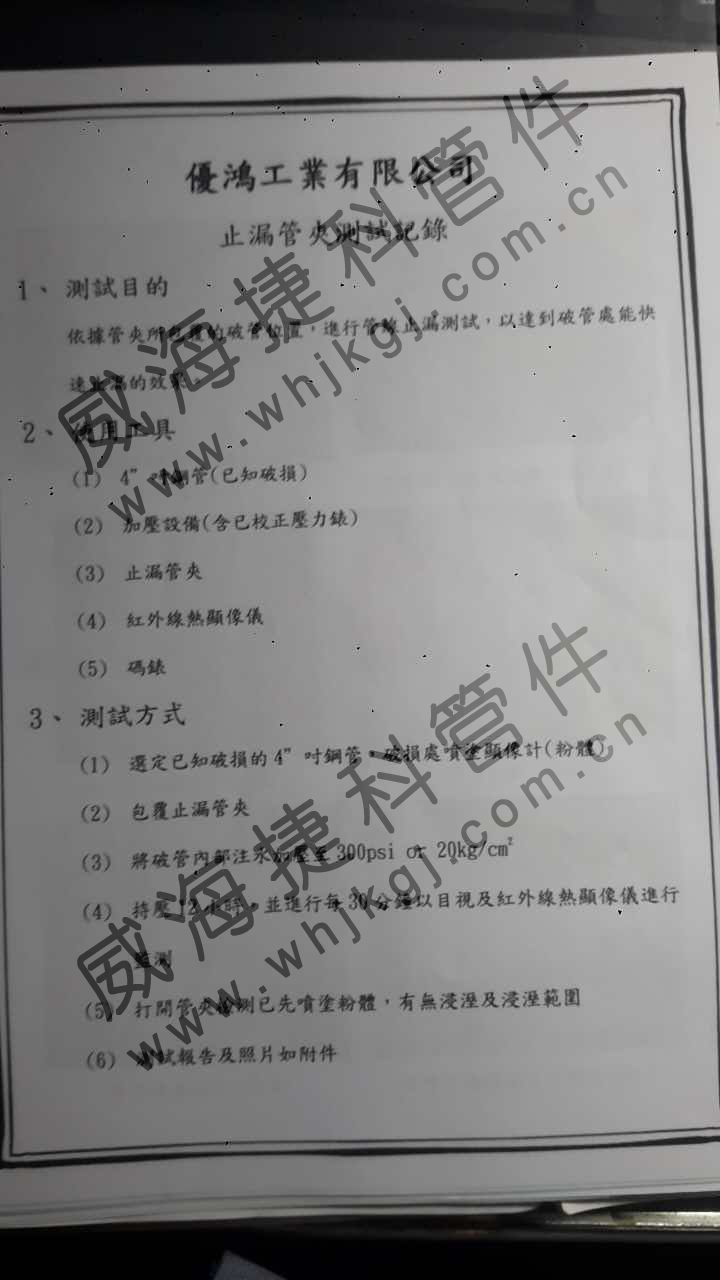 優鴻工業有限公司
止漏管夾測試記錄
1、 測試目的
依據管夾所包覆的破管位置，進行管線止漏測試，以達到破管處能快
速止漏的效果。
2、 使用工具
(1) 4”吋鋼管(已知破損)
(2) 加壓設備(含已校正壓力錶)
(3) 止漏管夾
(4) 紅外線熱顯像儀
(5) 碼錶
3、 測試方式
(1) 選定已知破損的4”吋鋼管，破損處噴塗顯像計(粉體)
(2) 包覆止漏管夾
(3) 將破管內部注水加壓至300psi or 20kg/cm²
(4) 持壓12小時，並進行每30分鐘以目視及紅外線熱顯像儀進行
監測
(5) 打開管夾檢測已先噴塗粉體，有無浸溼及浸溼範圍
(6) 測試報告及照片如附件
威海捷科管件
www.whjkgj.com.cn
威海捷科管件
www.whjkgj.com.cn